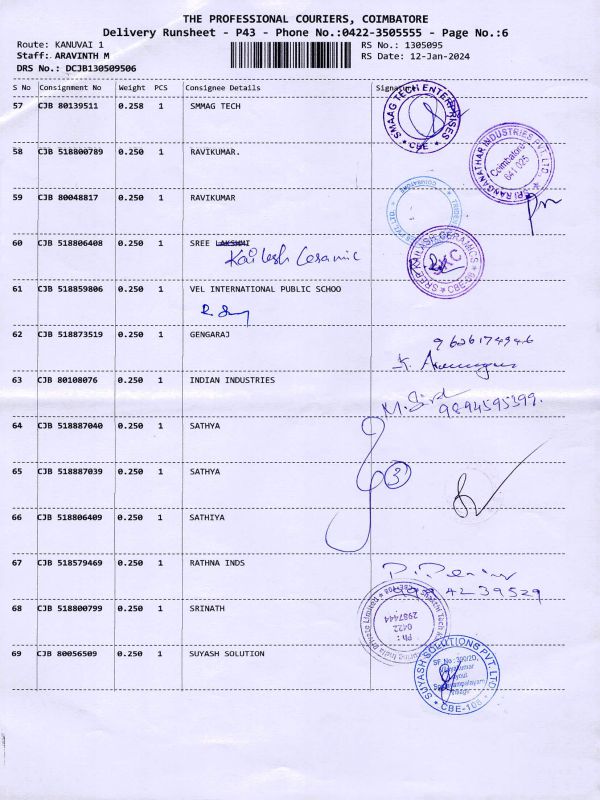 THE PROFESSIONAL COURIERS, COIMBATORE
Delivery Runsheet - P43 - Phone No.:0422-3505555 - Page No.:6
Route: KANUVAI 1 RS No.: 1305095
Staff: ARAVINTH M RS Date: 12-Jan-2024
DRS No.: DCJB130509506
S No Consignment No Weight PCS Consignee Details Signature
57 CJB 80139511 0.258 1 SMMAG TECH
SMAAG TECH ENTERPRISES
CBE
58 CJB 518800789 0.250 1 RAVIKUMAR.
SRI RANGANATHAR INDUSTRIES PVT. LTD
Coimbatore
641 025
59 CJB 80048817 0.250 1 RAVIKUMAR
COIMBATORE
60 CJB 518806408 0.250 1 SREE LAKSHMI
Kailesh Ceramic
SREE KAILASH CERAMICS
61 CJB 518859806 0.250 1 VEL INTERNATIONAL PUBLIC SCHOO
62 CJB 518873519 0.250 1 GENGARAJ
63 CJB 80108076 0.250 1 INDIAN INDUSTRIES
9894595399.
64 CJB 518887040 0.250 1 SATHYA
65 CJB 518887039 0.250 1 SATHYA
3
66 CJB 518806409 0.250 1 SATHIYA
67 CJB 518579469 0.250 1 RATHNA INDS
68 CJB 518800799 0.250 1 SRINATH
Ph :
0422
2987444
69 CJB 80056509 0.250 1 SUYASH SOLUTION
SUYASH SOLUTIONS PVT. LTD
SF No : 300/2D,
Village
CBE-108